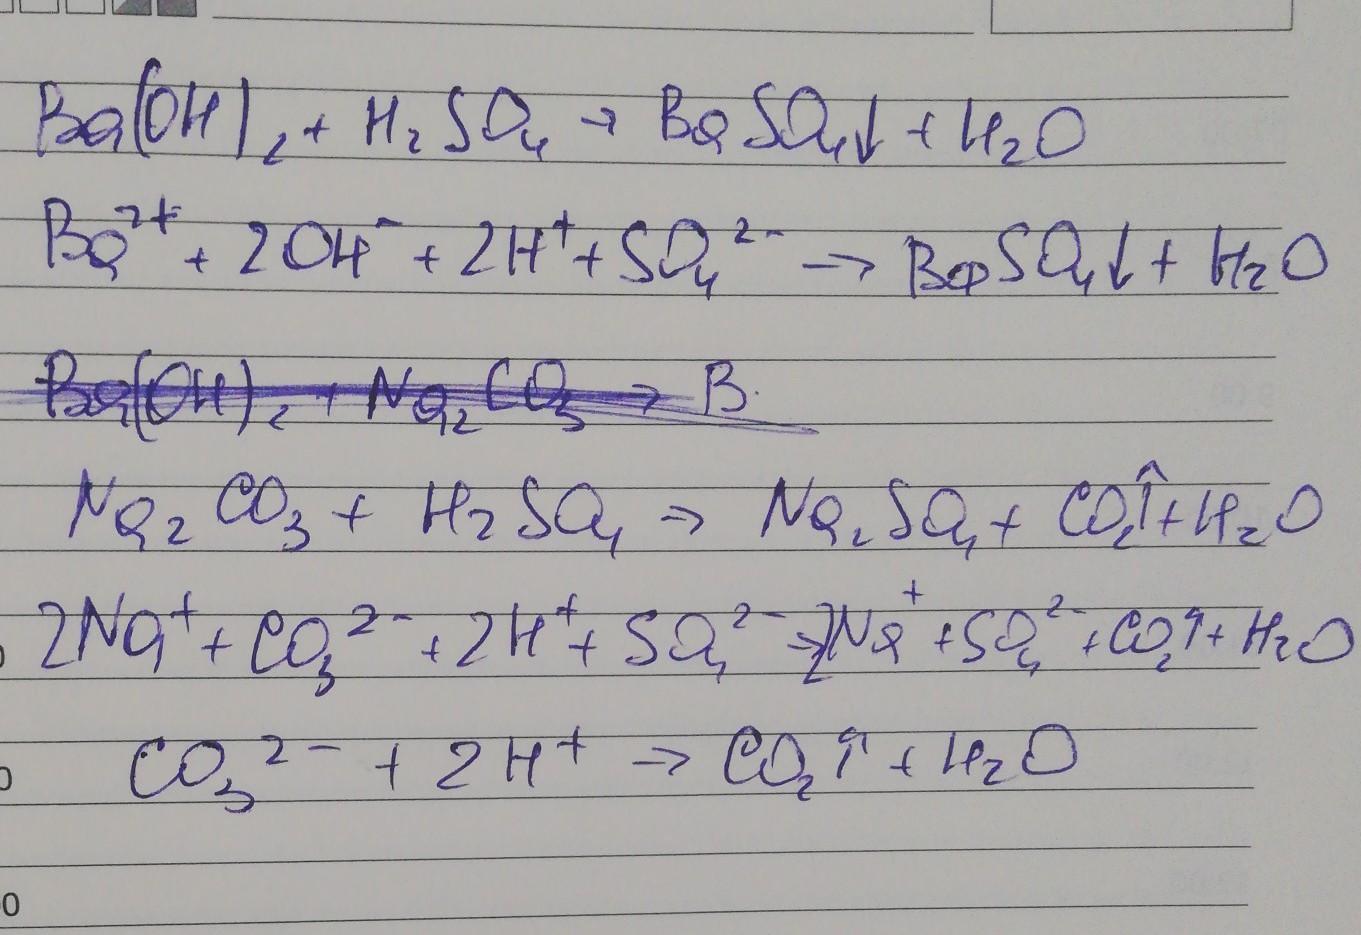 Ba(OH)₂ + H₂SO₄ → BaSO₄↓ + H₂O
Ba²⁺ + 2OH⁻ + 2H⁺ + SO₄²⁻ → BaSO₄↓ + H₂O
Ba(OH)₂ + Na₂CO₃ → B.
Na₂CO₃ + H₂SO₄ → Na₂SO₄ + CO₂↑ + H₂O
2Na⁺ + CO₃²⁻ + 2H⁺ + SO₄²⁻ → 2Na⁺ + SO₄²⁻ + CO₂↑ + H₂O
CO₃²⁻ + 2H⁺ → CO₂↑ + H₂O